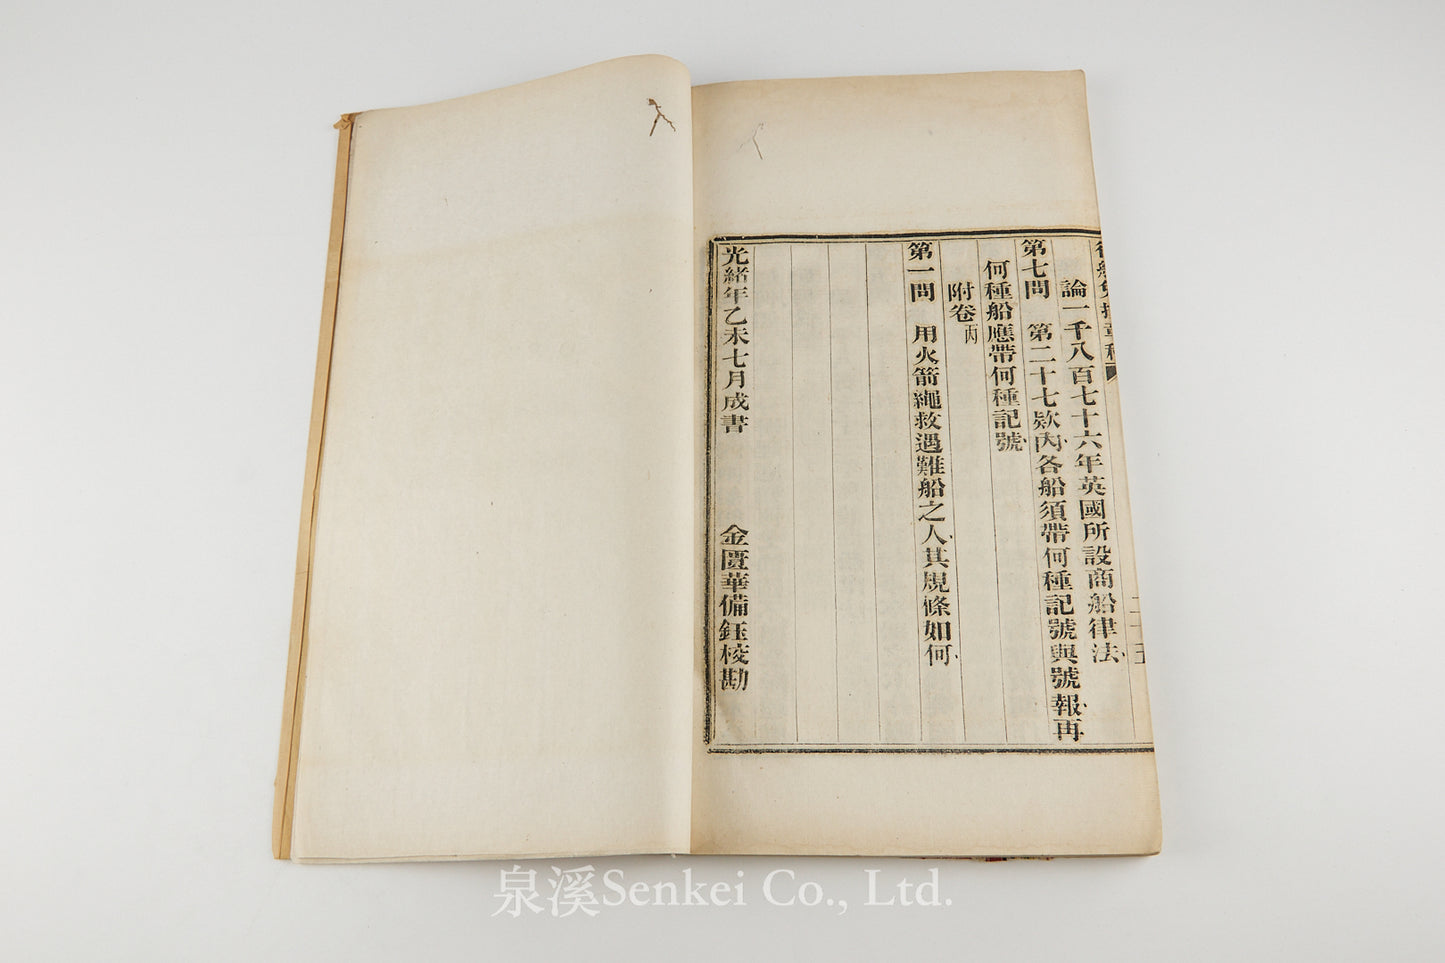 行船免撞章程
二十五
論一千八百七十六年英國所設商船律法
第七問　第二十七欵內各船須帶何種記號與號報再
何種船應帶何種記號
附卷丙
第一問　用火箭繩救遇難船之人其規條如何
光緒年乙未七月成書　金匱華備鈺校勘
泉溪Senkei Co., Ltd.